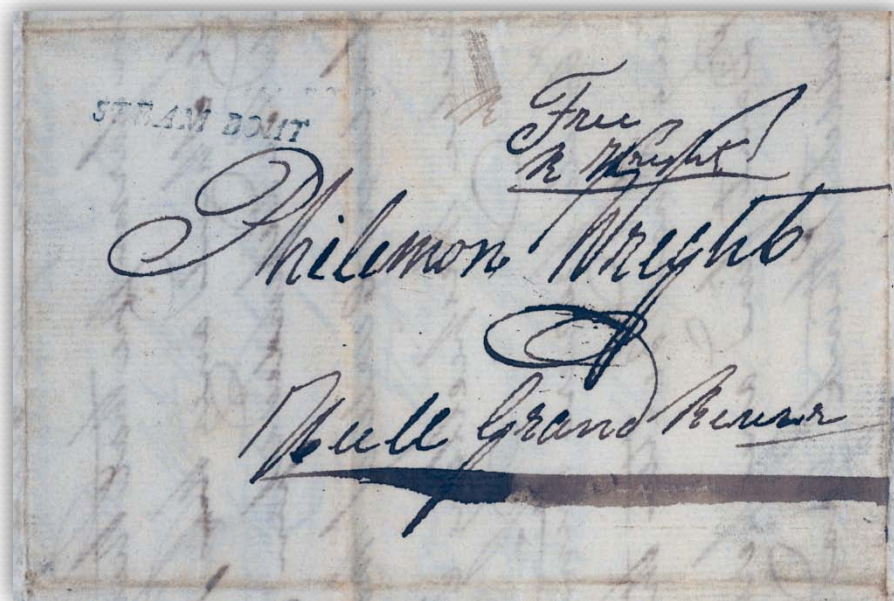 STEAM BOAT
Free
R Wright
Philemon Wright
Hull Grand River